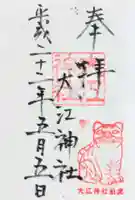 奉拝
大江神社
平成二十二年五月五日
大江神社狛虎